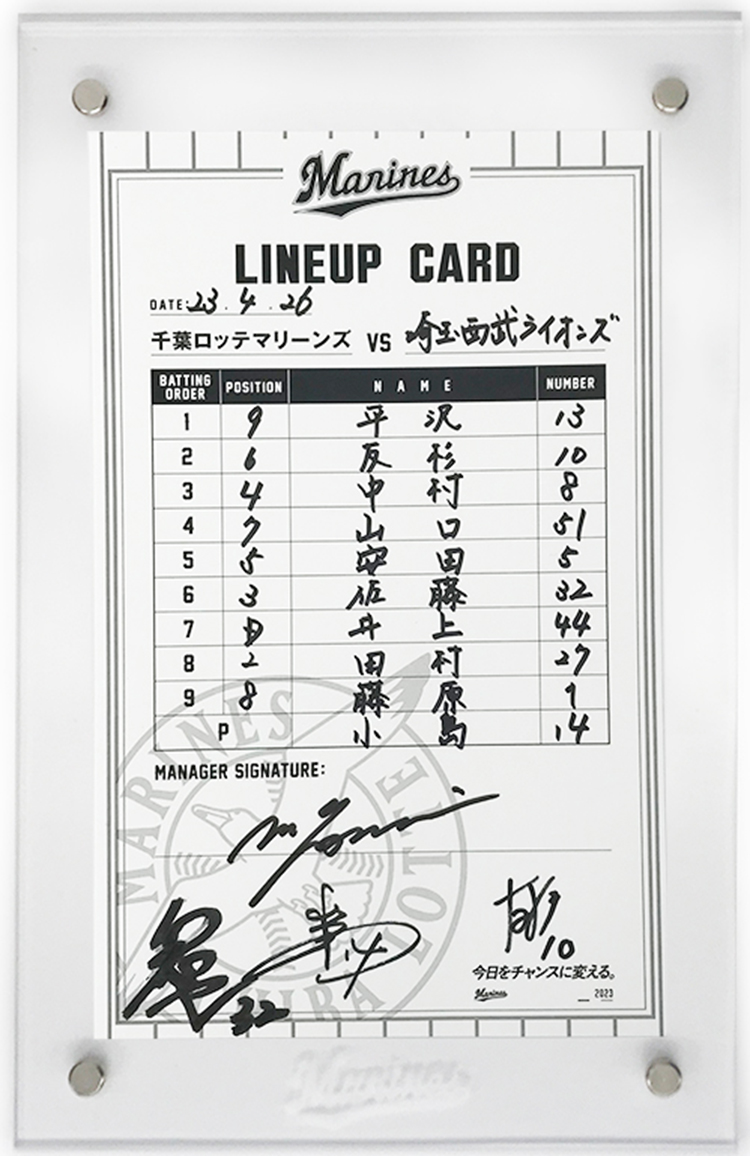 Marines
LINEUP CARD
DATE: 23.4.26
千葉ロッテマリーンズ VS 埼玉西武ライオンズ
BATTING ORDER POSITION NAME NUMBER
1 9 平沢 13
2 6 友杉 10
3 4 中村 8
4 7 山口 51
5 5 安田 5
6 3 佐藤 32
7 D 井上 44
8 2 田村 27
9 8 藤原 1
P 小島 14
MANAGER SIGNATURE:
32
14
10
今日をチャンスに変える。
Marines 2023
MARINES
CHIBA LOTTE
Marines